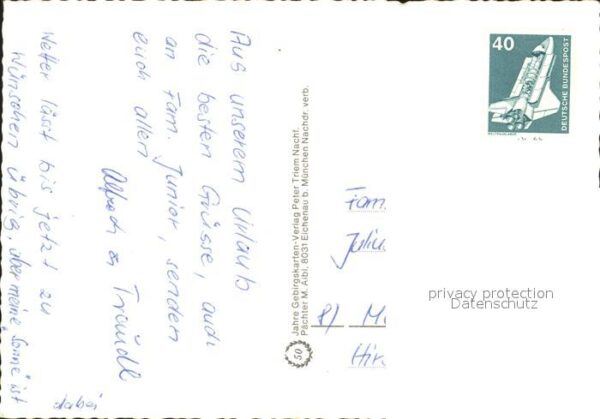 Aus unserem Urlaub
die besten Grüsse, auch
an Fam. Junior, senden
euch allen
Traudl
Wetter lässt bis jetzt zu
wünschen übrig, aber meine „Sonne" ist
dabei
50 Jahre Gebirgskarten-Verlag Peter Triem Nachf.
Pächter M. Aibl, 8031 Eichenau b. München Nachdr. verb.
40
DEUTSCHE BUNDESPOST
Fam.
Juliu
8) M
Hir
privacy protection
Datenschutz